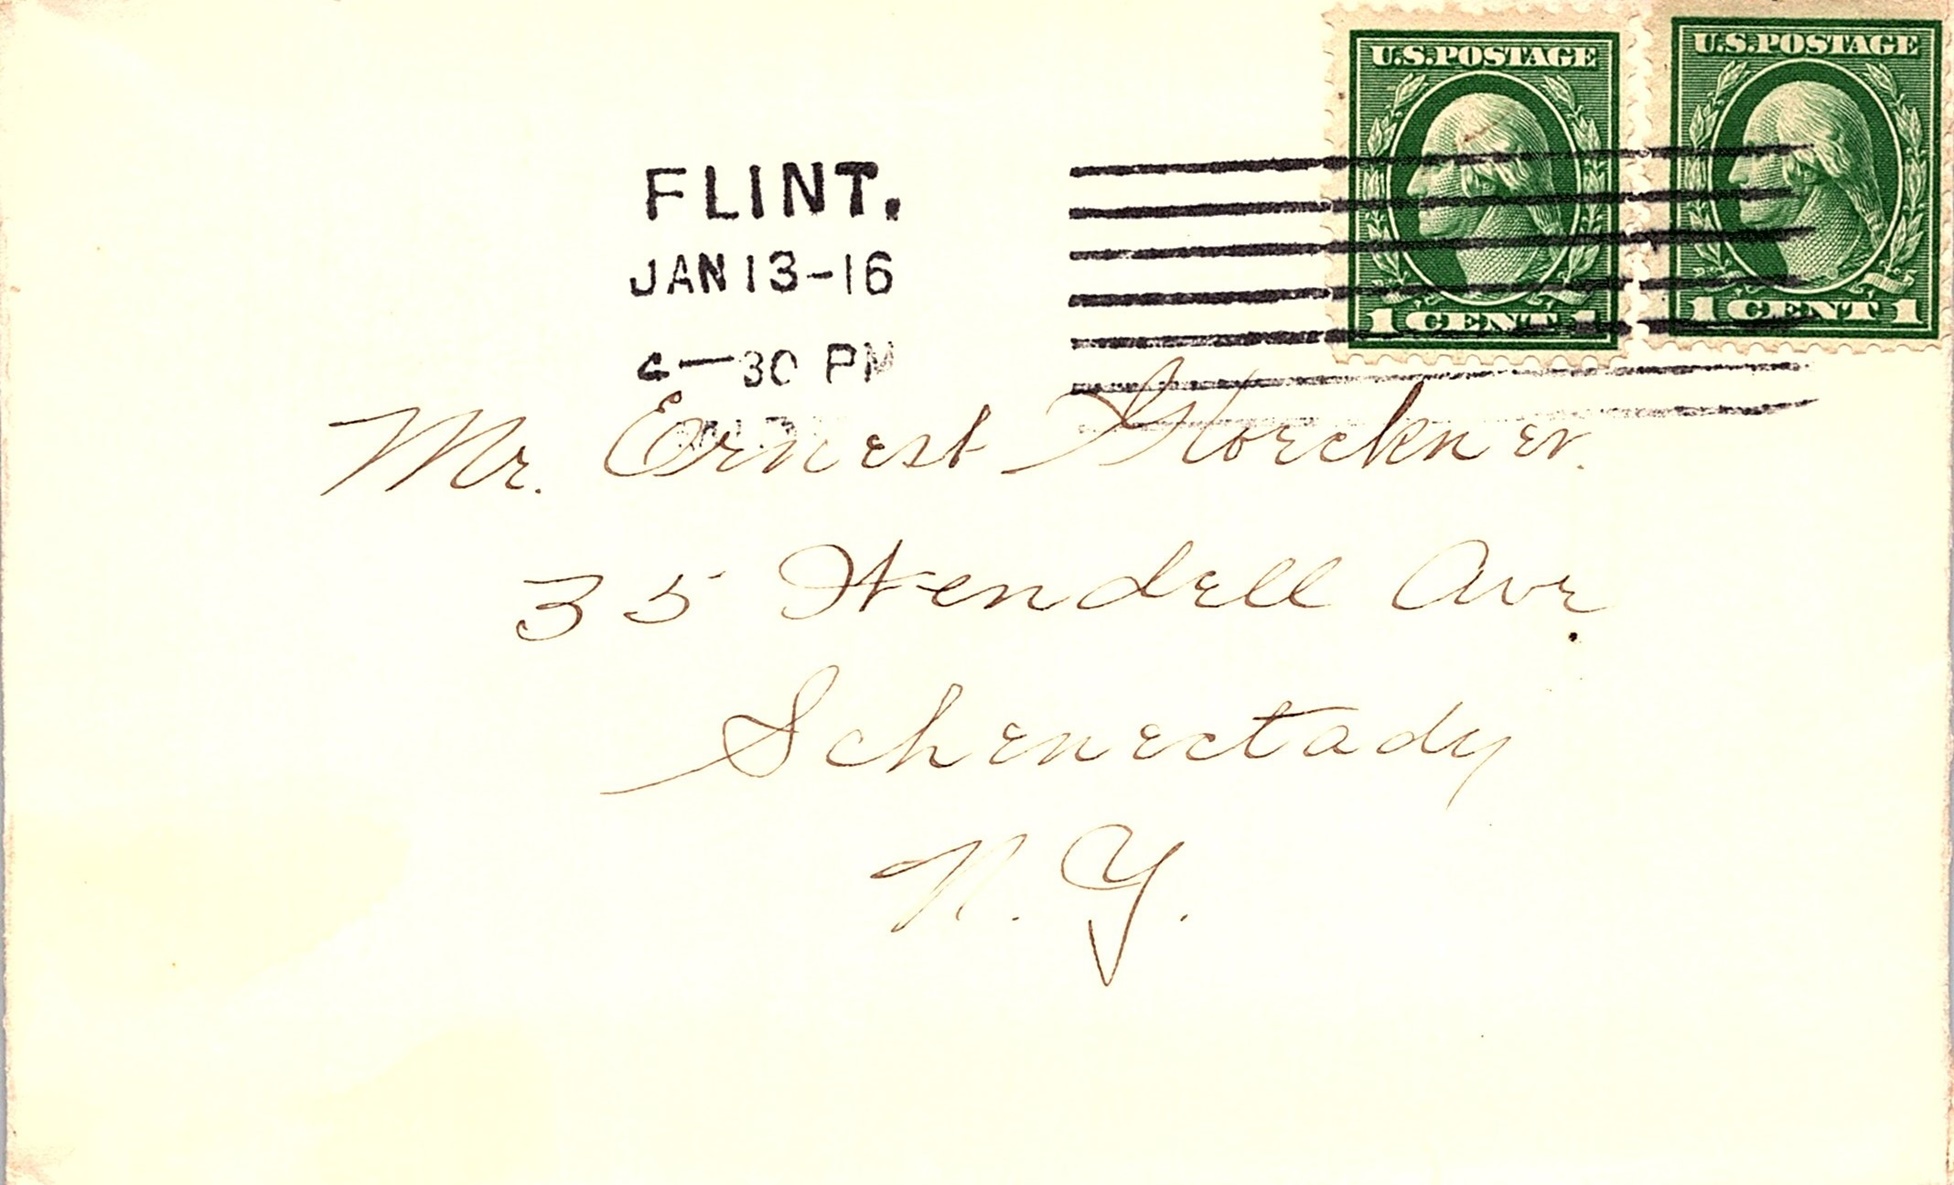 U.S. POSTAGE U.S. POSTAGE
1 CENT 1 1 CENT 1
FLINT.
JAN 13-16
4-30 PM
Mr. Ernest
35 Wendell Ave.
Schenectady
N. Y.